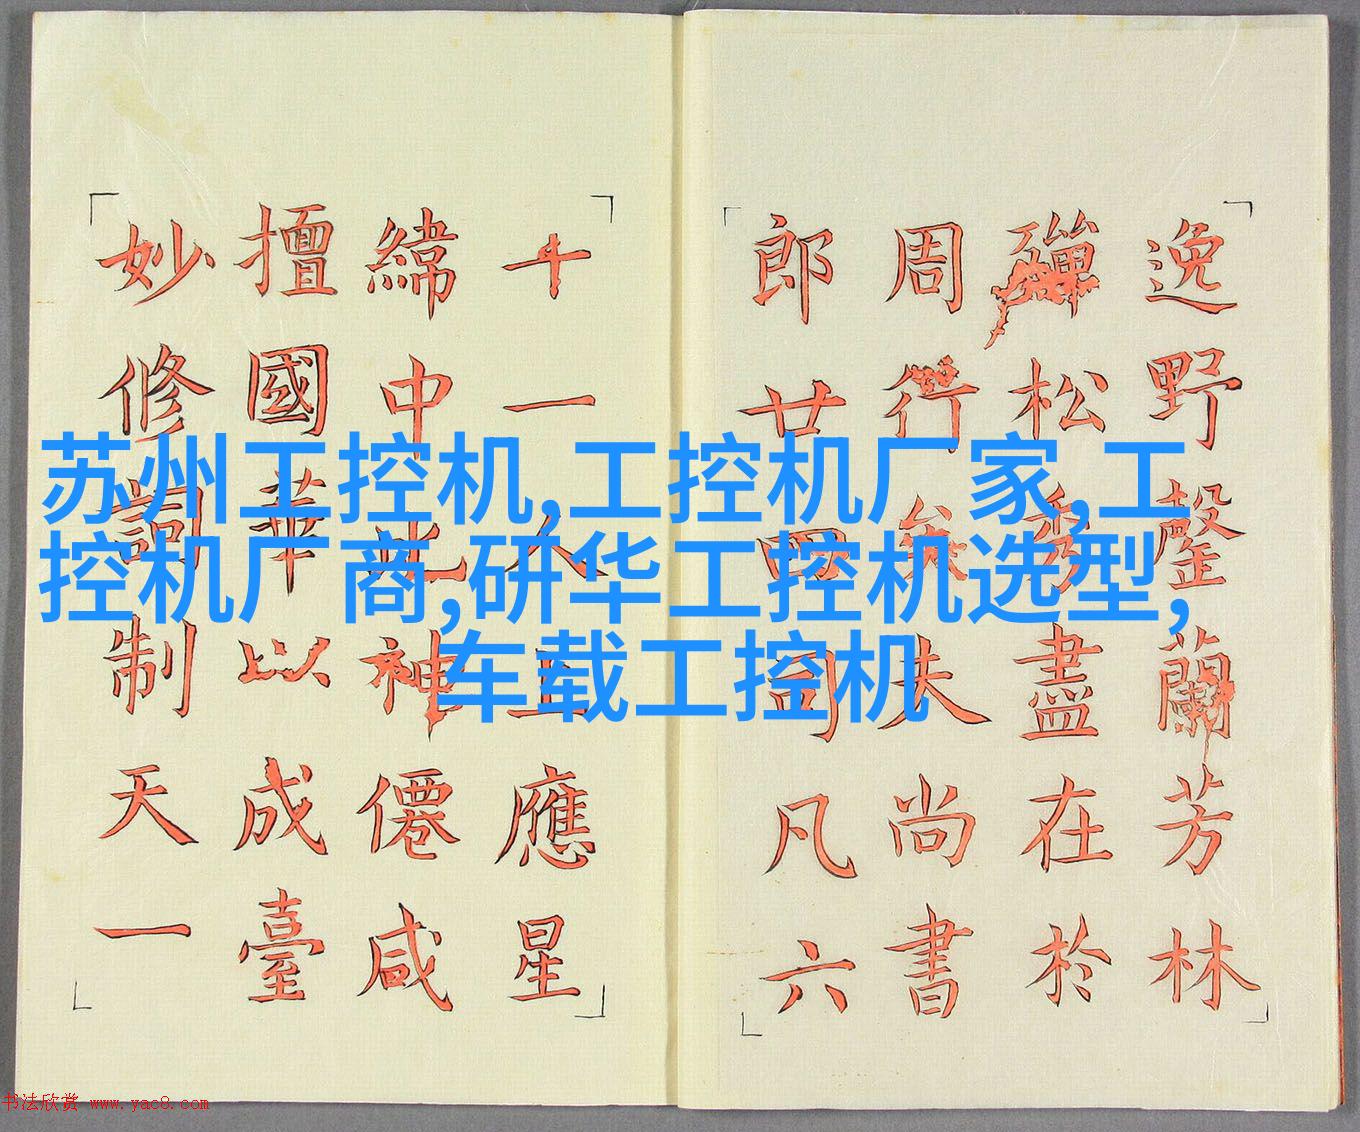 逸野罄蘭芳林
殫松秀盡在於
周行矣夫尚書
郎廿四司凡六
十一人上應星
緯中比神僊咸
擅國華以成臺
妙修詞制天一
苏州工控机,工控机厂家,工
控机厂商,研华工控机选型,
车载工控机
书法欣赏 www.yac8.com